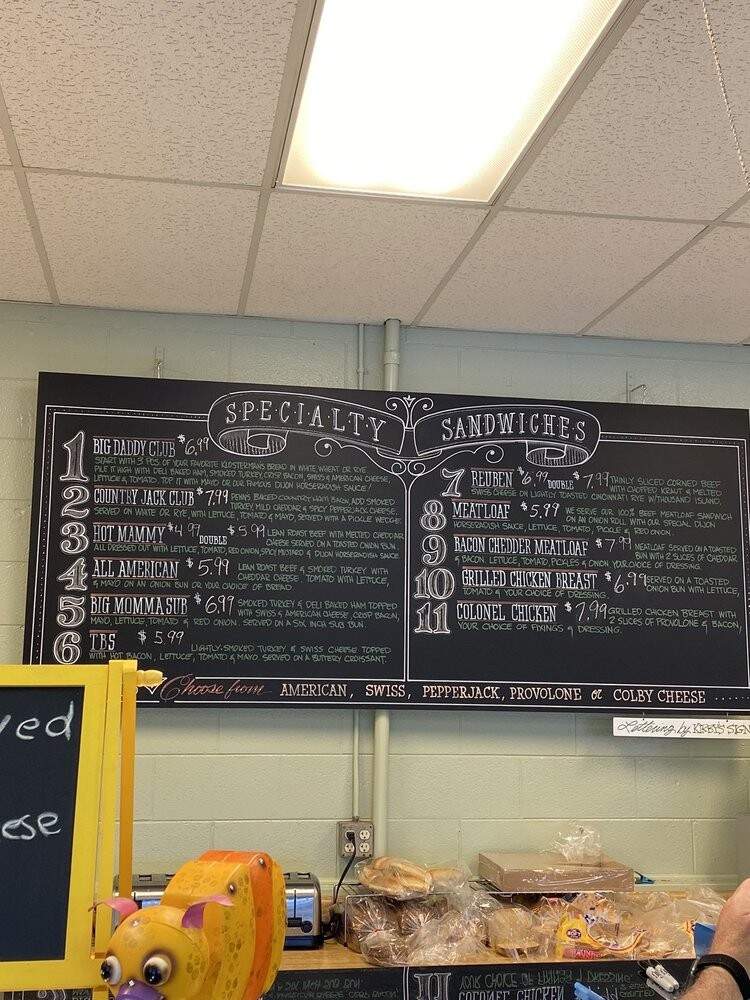 SPECIALTY SANDWICHES
1 BIG DADDY CLUB $6.99
START WITH 3 PCS OF YOUR FAVORITE KLOSTERMANS BREAD IN WHITE, WHEAT OR RYE
PILE IT HIGH WITH DELI BAKED HAM, SMOKED TURKEY, CRISP BACON, SWISS & AMERICAN CHEESE,
LETTUCE & TOMATO. TOP IT WITH MAYO OR OUR FAMOUS DIJON HORSERADISH SAUCE!
2 COUNTRY JACK CLUB $7.99 PENN'S BAKED COUNTRY HAM, BACON, ADD SMOKED
TURKEY, MILD CHEDDAR & SPICY PEPPERJACK CHEESE,
SERVED ON WHITE OR RYE, WITH LETTUCE, TOMATO & MAYO, SERVED WITH A PICKLE WEDGE
3 HOT MAMMY $4.99 DOUBLE $5.99 LEAN ROAST BEEF WITH MELTED CHEDDAR
CHEESE SERVED ON A TOASTED ONION BUN
ALL DRESSED OUT WITH LETTUCE, TOMATO, RED ONION, SPICY MUSTARD & DIJON HORSERADISH SAUCE
4 ALL AMERICAN $5.99 LEAN ROAST BEEF & SMOKED TURKEY WITH
CHEDDAR CHEESE TOMATO WITH LETTUCE,
& MAYO ON AN ONION BUN OR YOUR CHOICE OF BREAD.
5 BIG MOMMA SUB $6.99 SMOKED TURKEY & DELI BAKED HAM TOPPED
WITH SWISS & AMERICAN CHEESE, CRISP BACON,
MAYO, LETTUCE, TOMATO & RED ONION. SERVED ON A SIX INCH SUB BUN
6 TBS $5.99 LIGHTLY-SMOKED TURKEY & SWISS CHEESE TOPPED
WITH HOT BACON, LETTUCE, TOMATO & MAYO. SERVED ON A BUTTERY CROISSANT.
7 REUBEN $6.99 DOUBLE $7.99 THINLY SLICED CORNED BEEF
WITH CHOPPED KRAUT & MELTED
SWISS CHEESE ON LIGHTLY TOASTED CINCINNATI RYE W/THOUSAND ISLAND
8 MEATLOAF $5.99 WE SERVE OUR 100% BEEF MEATLOAF SANDWICH
ON AN ONION ROLL WITH OUR SPECIAL DIJON
HORSERADISH SAUCE, LETTUCE, TOMATO, PICKLE, & RED ONION.
9 BACON CHEDDER MEATLOAF $7.99 MEATLOAF SERVED ON A TOASTED
BUN WITH 2 SLICES OF CHEDDAR
& BACON. LETTUCE, TOMATO, PICKLES & ONION. YOUR CHOICE OF DRESSING.
10 GRILLED CHICKEN BREAST $6.99 SERVED ON A TOASTED
ONION BUN WITH LETTUCE,
TOMATO & YOUR CHOICE OF DRESSING.
11 COLONEL CHICKEN $7.99 GRILLED CHICKEN BREAST WITH
2 SLICES OF PROVOLONE & BACON,
YOUR CHOICE OF FIXINGS & DRESSING.
Choose from AMERICAN, SWISS, PEPPERJACK, PROVOLONE or COLBY CHEESE
Lettering by KIRBY'S SIGN
ved
ese